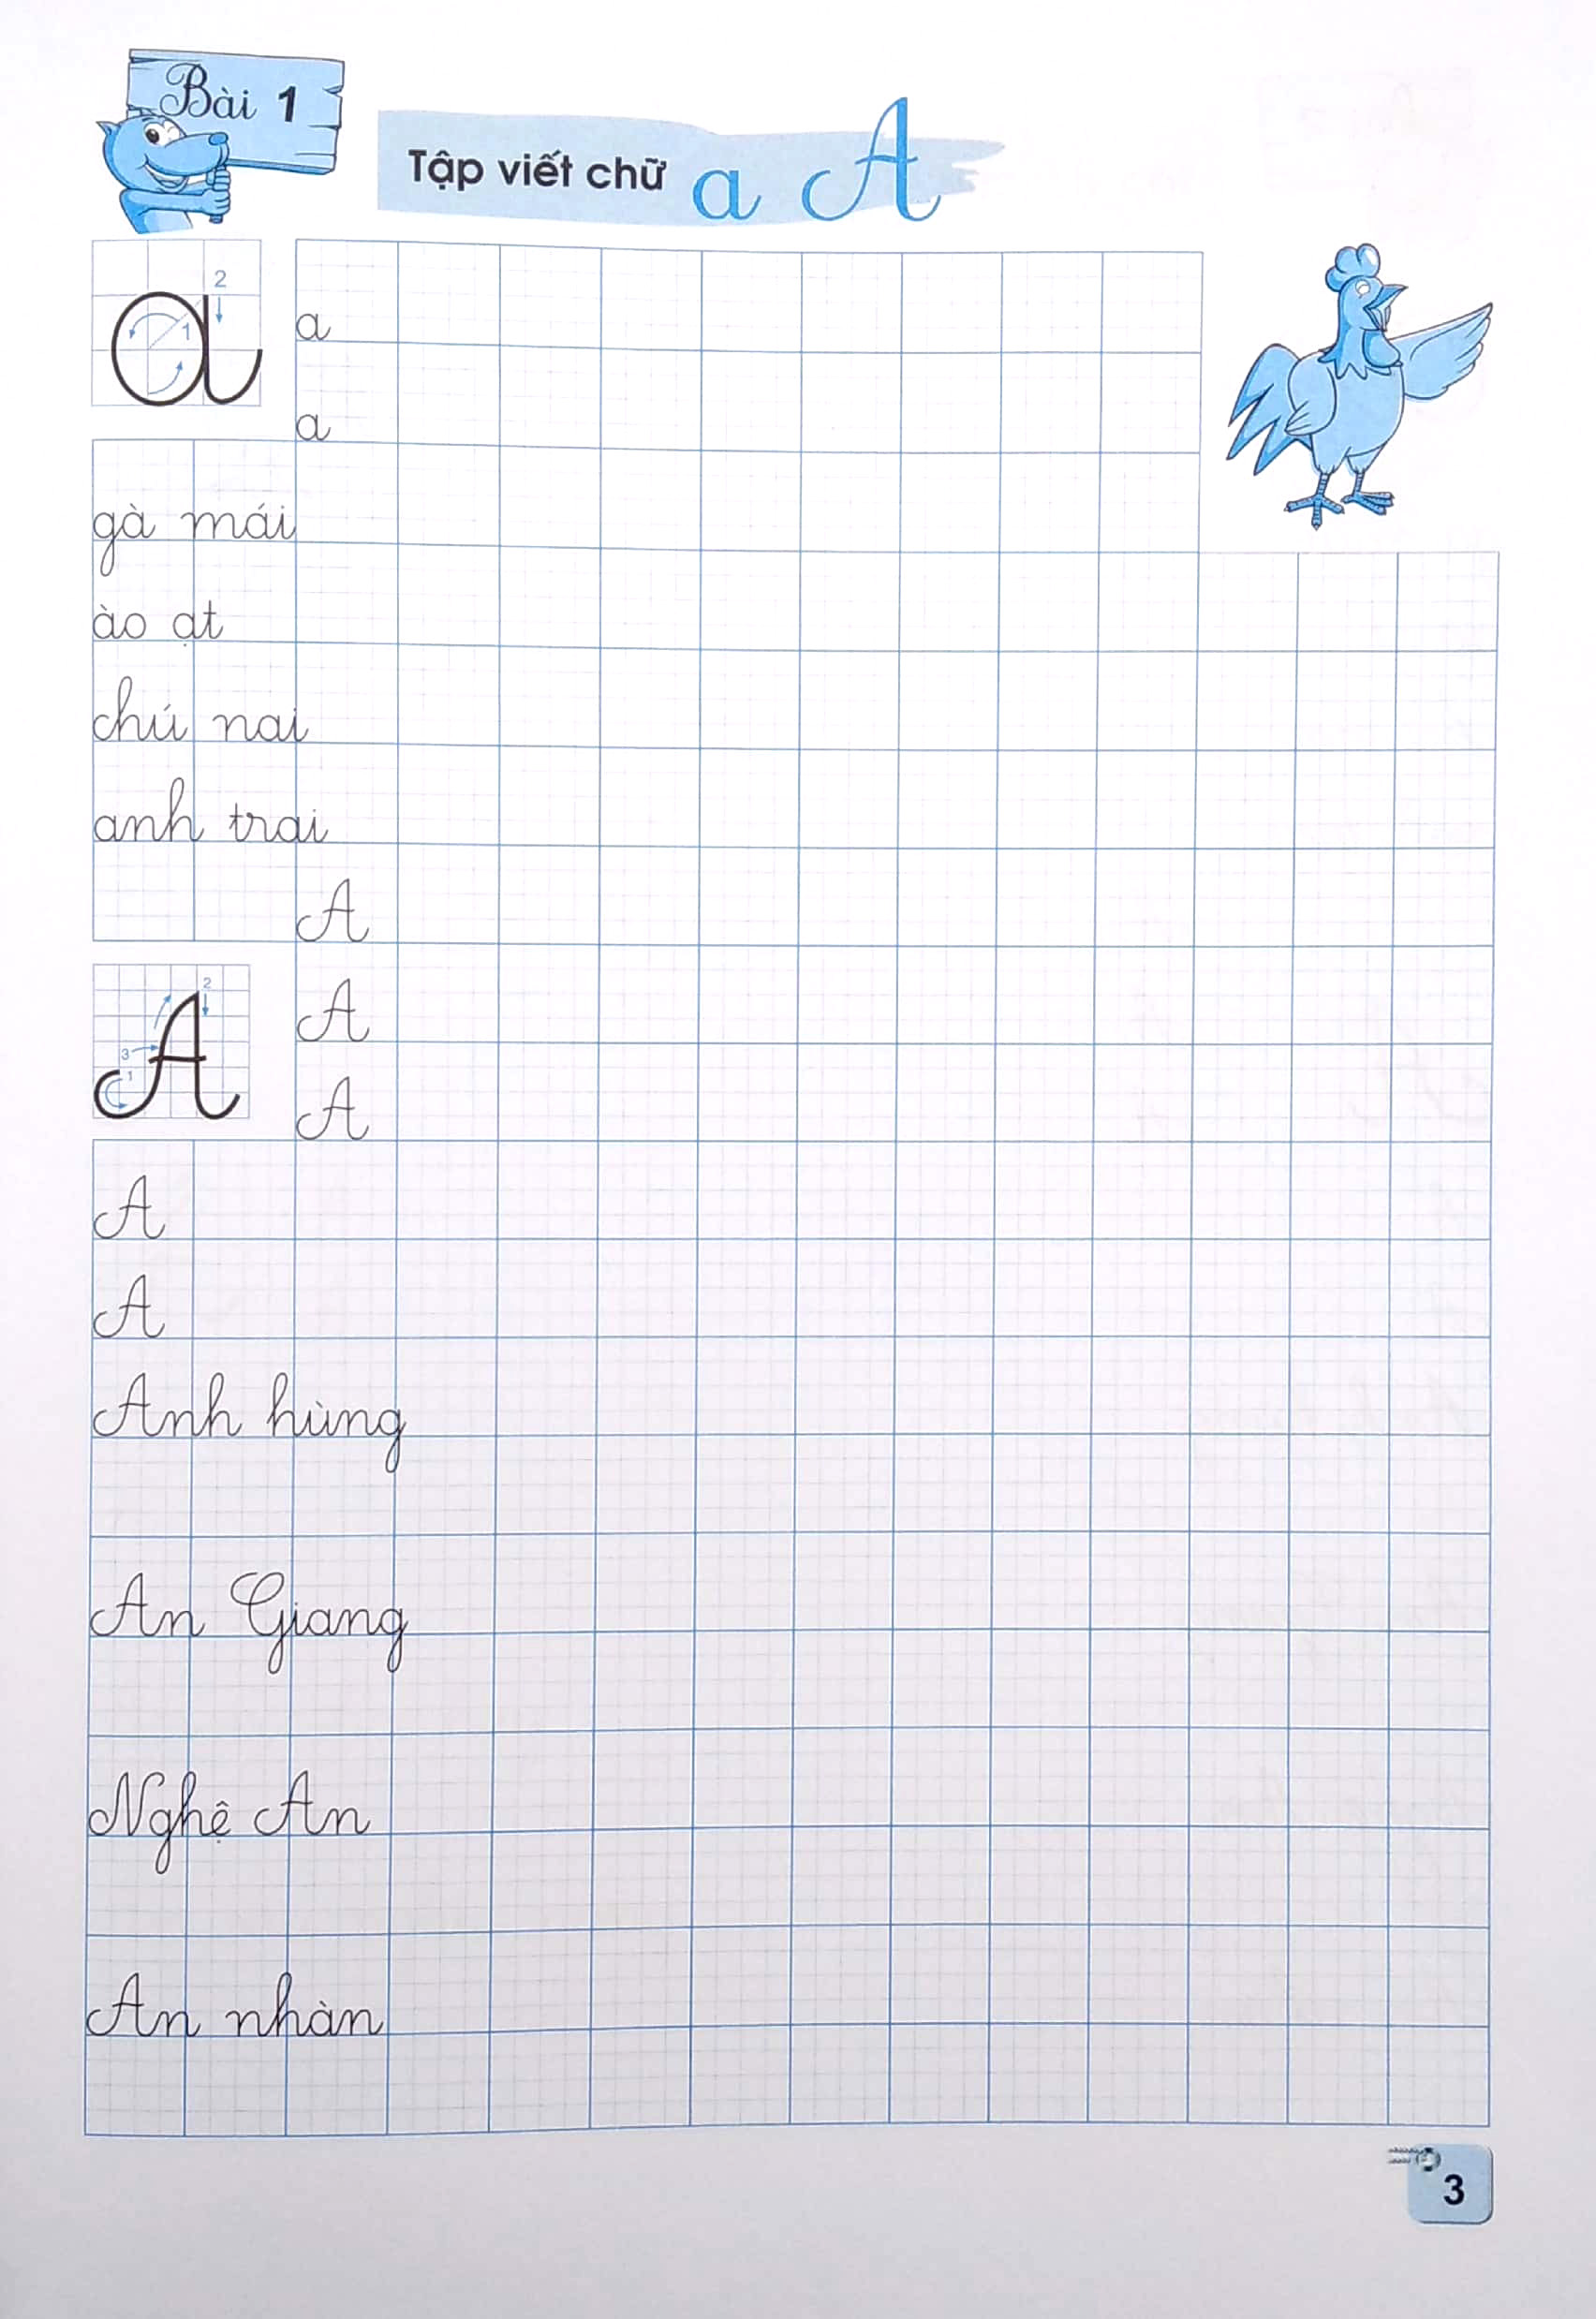 Bài 1
Tập viết chữ a A
a 1 2
a
a
gà mái
ào ạt
chú nai
anh trai
A
A 1 2 3
A
A
A
A
Anh hùng
An Giang
Nghệ An
An nhàn
3